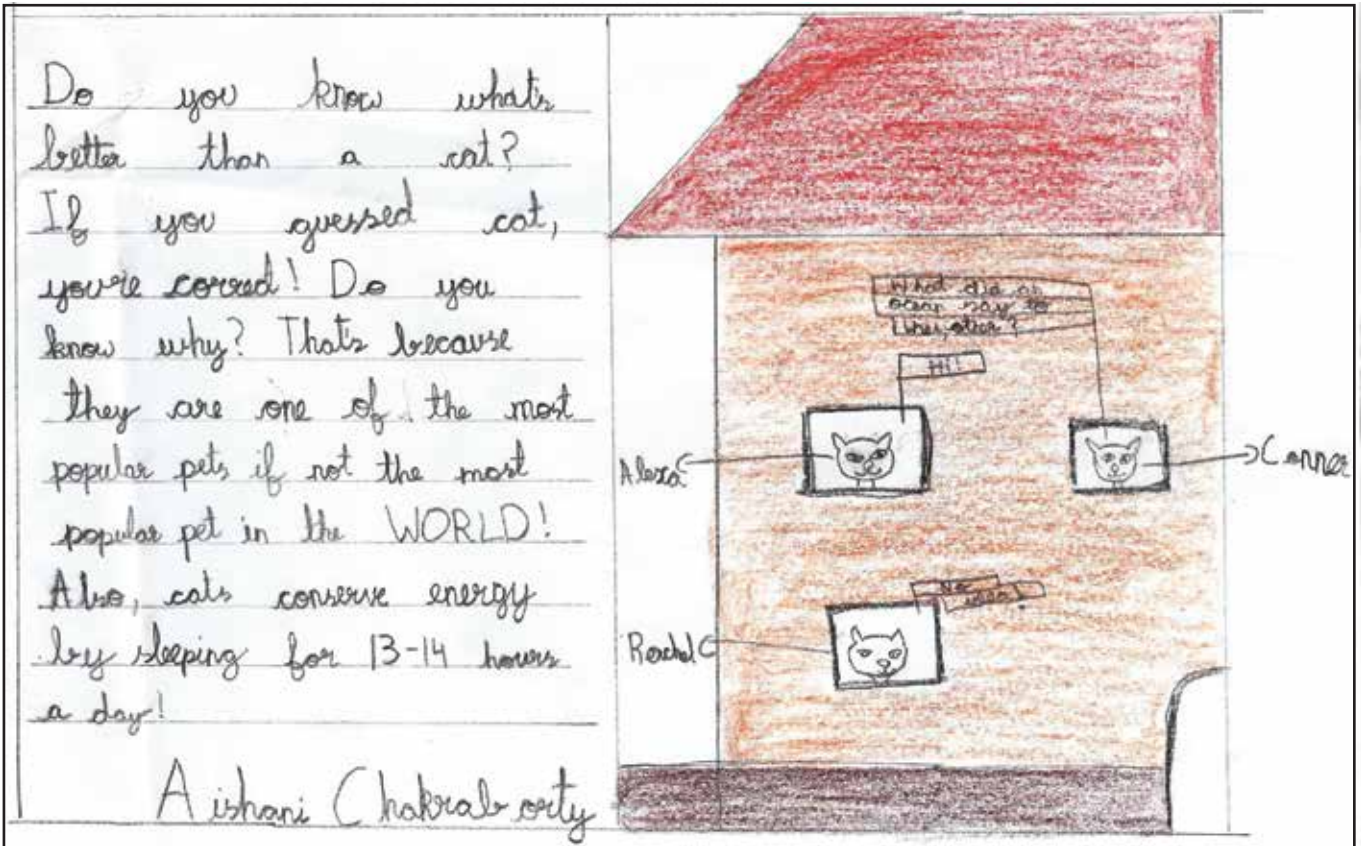 Do you know what's
better than a cat?
If you guessed cat,
you're correct! Do you
know why? That's because
they are one of the most
popular pets if not the most
popular pet in the WORLD!
Also, cats conserve energy
by sleeping for 13-14 hours
a day!
Aishani Chakraborty
What did an
ocean say to
the other?
Hi!
Alexa
Conner
No
idea!
Rachel